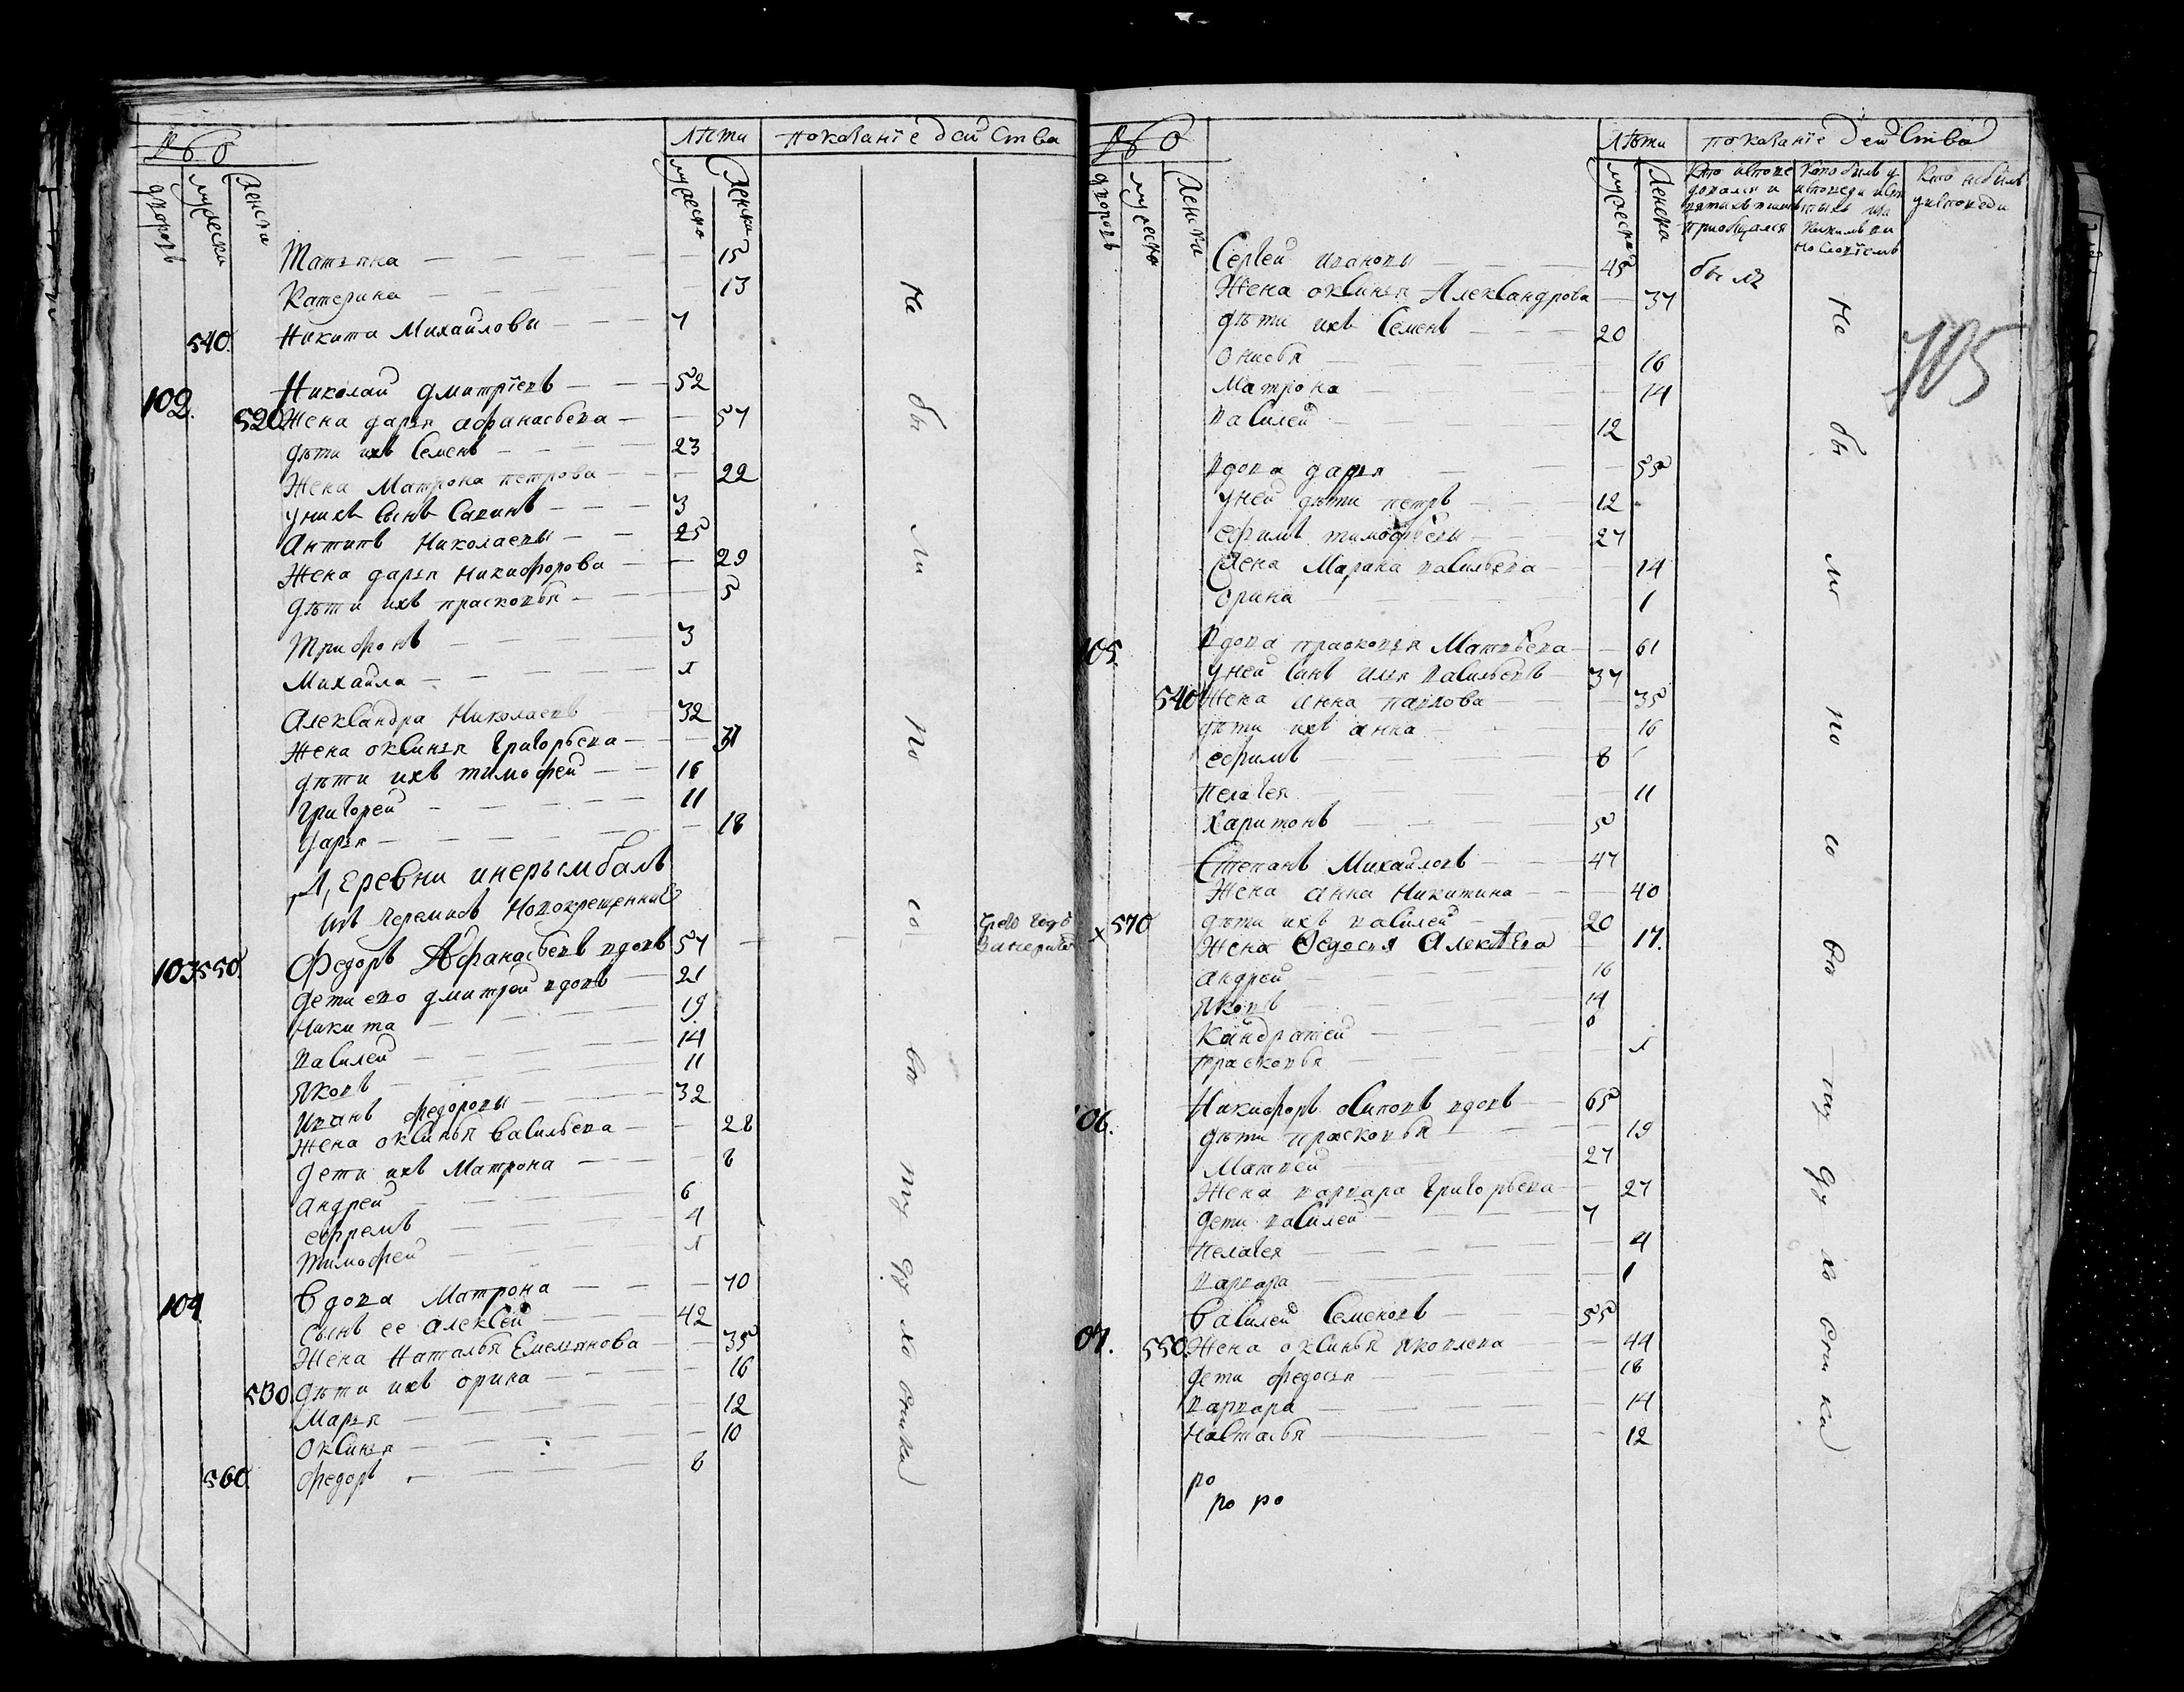 № 6
Лѣта
показанїе действа
дворовъ
мужеска
женска
мужеска
женска
Татьяна 15
Катерина 13
540. Никита Михайловы 7
102. Николай дмитрїевъ 52
520 Жена дарья афанасьева 57
дѣти ихъ Семенъ 23
Жена Матрона петрова 22
у нихъ сынъ Савинъ 3
Антипъ Николаевы 25
Жена дарья никифорова 29
дѣти ихъ прасковья 5
Трифонъ 3
Михайла
Александра Николаевъ 32
Жена оксинья григорьева 31
дѣти ихъ тимофей 16
григорей 11
дарья 18
Деревни инерымбалъ
изъ черемисъ Новокрещенные
103 550. Федоръ Афанасьевъ вдовъ 57
дети ево дмитрей вдовъ 21
Никита 19
василей 14
Яковъ 11
Иванъ федоровы 32
Жена оксинья васильева 28
дети ихъ Матрона 8
андрей 6
ефремъ 4
Тимофей
104 вдова Матрона 70
сынъ ее алексей 42
Жена Наталья Емельянова 35
530. дѣти ихъ орина 16
Марья 12
оксинья 10
560. федоръ 8
не бы ли по со вѣ ту ду хо вника
№ 6
Лѣта
показанїе действа
дворовъ
мужеска
женска
мужеска
женска
Кто не былъ
у исповеди
Сергей ивановы 45 былъ
Жена оксинья Александрова 37
дѣти ихъ Семенъ 20
онисья 16
Матрона 14
василей 12
105
вдова дарья 55
у ней дѣти петръ 12
ефимъ тимофѣевы 27
Жена Марина васильева 14
орина 1
105. вдова прасковья Матвѣева 61
у ней сынъ илья васильевъ 37
540 Жена Анна павлова 35
дѣти ихъ анна 16
ефимъ 8
пелагея 11
харитонъ 5
Степанъ Михайловъ 47
Жена анна Никитина 40
х 570 дѣти ихъ василей 20
Жена Федосья Алексѣева 17.
андрей 16
Яковъ 14
Кондратей
прасковья
06. Никифоръ осиповъ вдовъ 65
дѣти прасковья 19
Матвей 27
Жена варвара григорьева 27
дети василей 7
пелагея 4
варвара 1
07. василей Семеновъ 55
550. Жена оксинья яковлева 44
дети федосья 18
варвара 14
Настасья 12
ро
ро ро
не бы ли по со вѣ ту ду хо вника